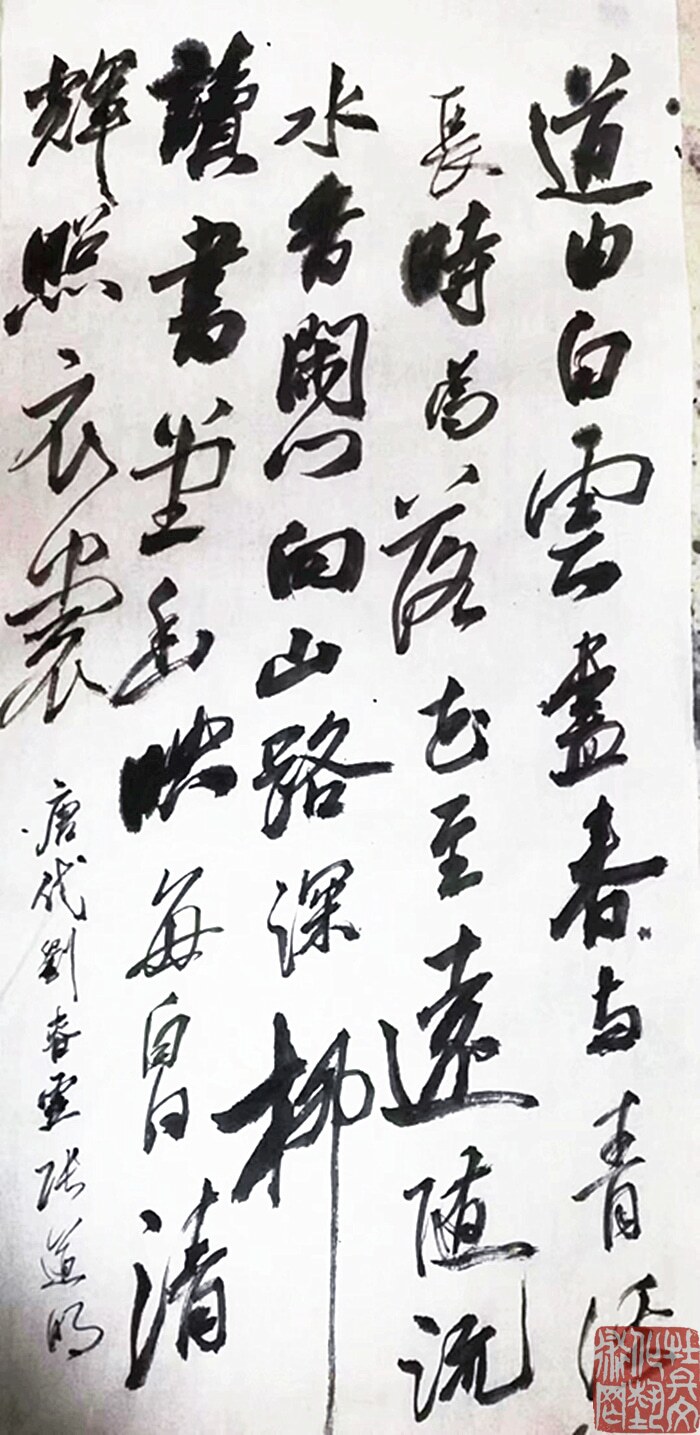 道由白雲盡春与青溪
長時有落花至遠随流
水香閑门向山路深柳
讀書堂幽映每白日清
輝照衣裳
唐代劉昚虚张道明